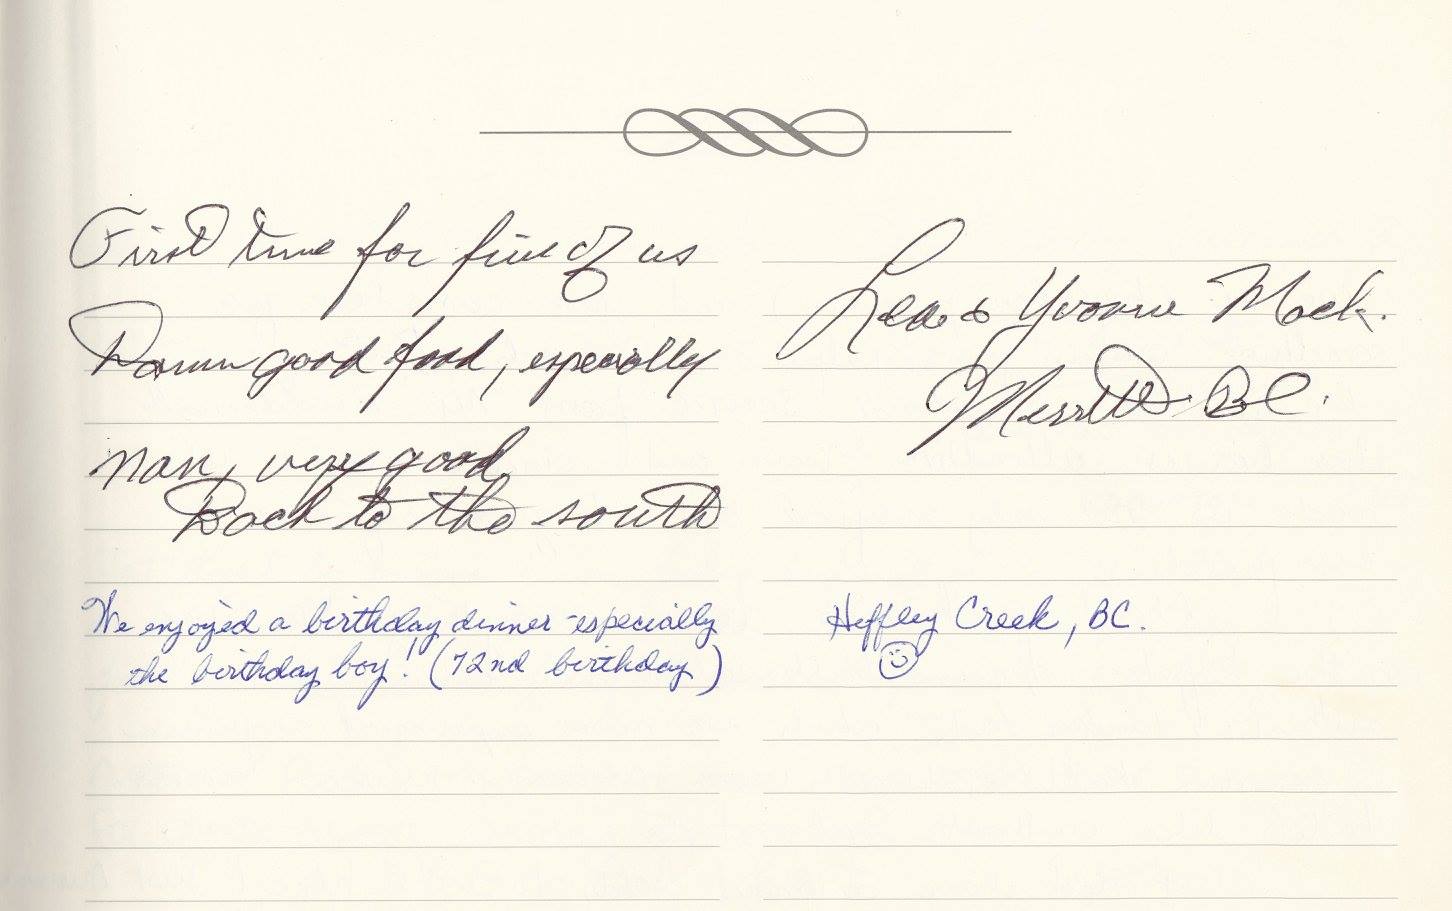 First time for five of us
Damn good food, especially
nan, very good
Back to the south
Leo & Yvonne Mock.
Merritt BC.
We enjoyed a birthday dinner - especially
the birthday boy! (72nd birthday)
Heffley Creek, BC.